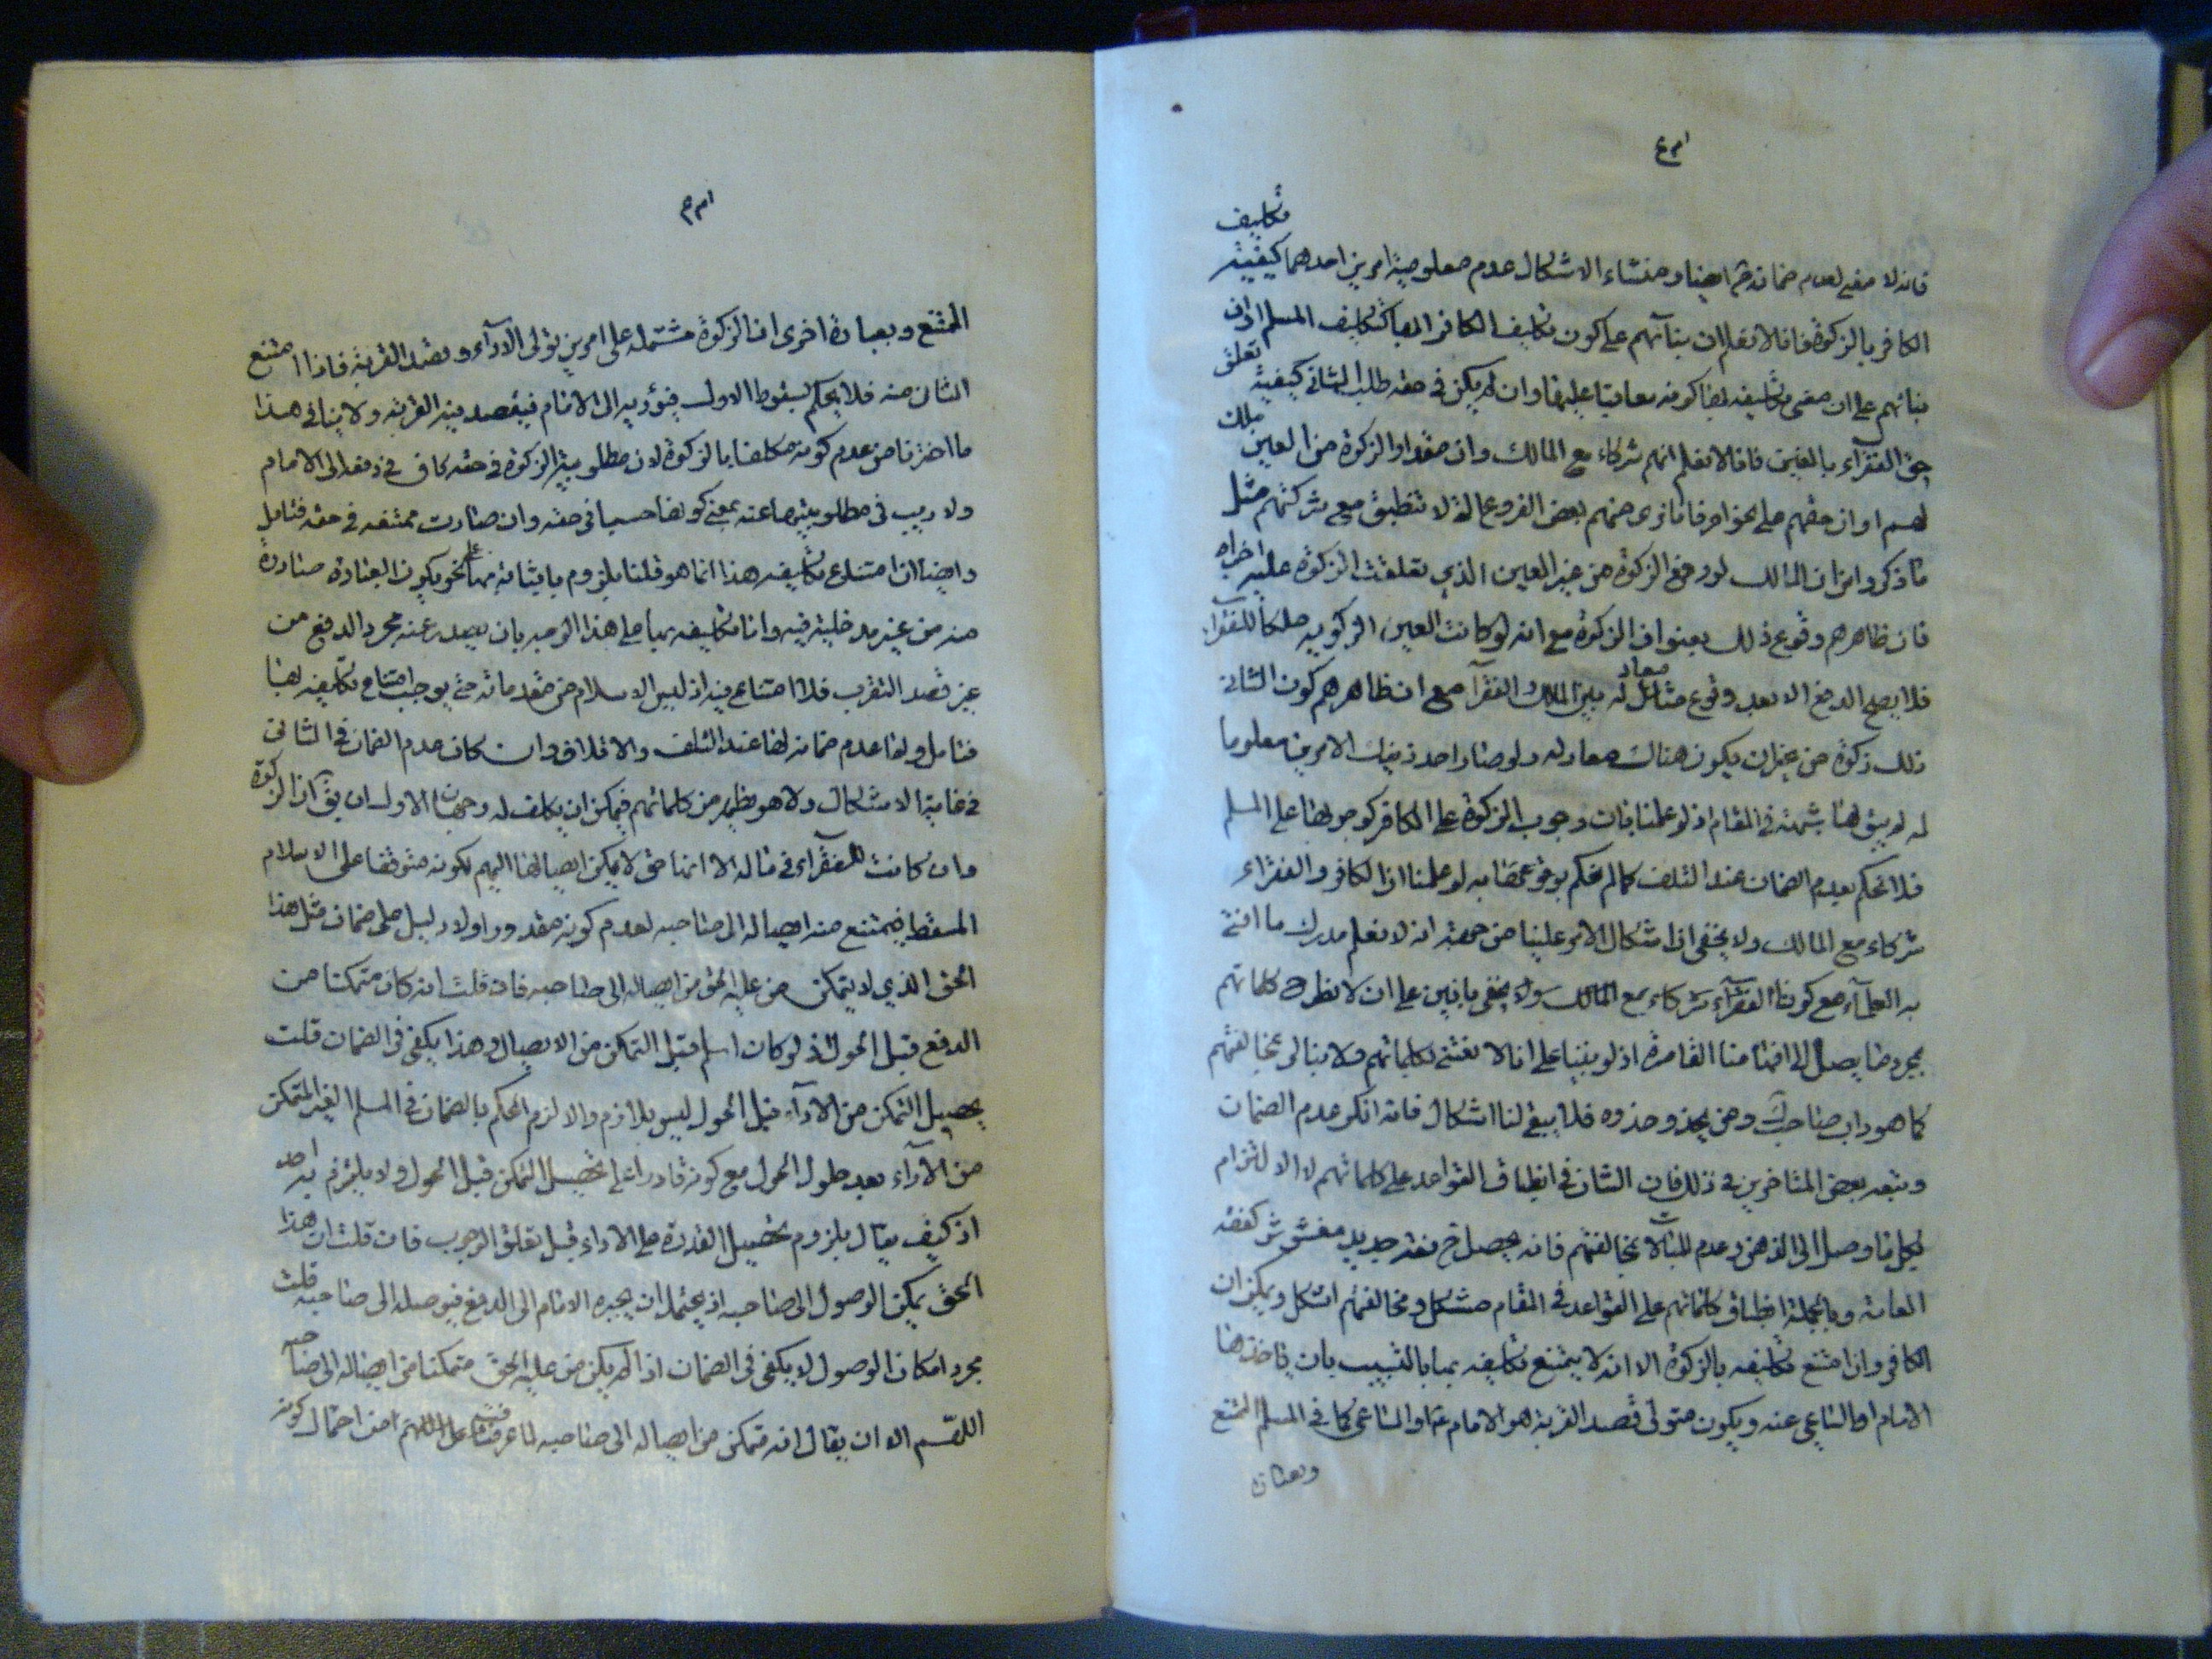 فانه لا معنى لعدم ضمانه ح ايضا ومنشاء الاشكال عدم معلومية امرين احدهما كيفية تكليف
الكافر بالزكوة فانا لا نعلم ان بنائهم على كون تكليف الكافر بها كتكليف المسلم او ان
بنائهم على ان معنى تكليفه بها كونه معاقبا عليها وان لم يكن في حقه طلب الثاني كيفية تعلق
حق الفقرآء بالعين فانا لا نعلم انهم شركاء مع المالك وان مقدار الزكوة من العين ملك
لهم او ان حقهم على نحو اخر فانا نرى منهم بعض الفروعا لا تنطبق مع شركتهم مثل
ما ذكروا من ان المالك لو دفع الزكوة من غير العين الذي تعلقت الزكوة عليه اجزاه
فان ظاهرهم وقوع ذلك بعنوان الزكوة مع انه لو كانت العين الزكوية ملكا للفقراء
فلا يصح الدفع الا بعد وقوع معادلة بين المالك والفقرآء مع ان ظاهرهم كون الثاني
ذلك زكوة من غير ان يكون هناك معادله ولو صار احد ذينك الامرين معلوما
لم يبق لنا شبهة في المقام اذ لو علمنا بان وجوب الزكوة على الكافر كوجوبها على المسلم
فلا نحكم بعدم الضمان عند التلف كما لم نحكم به لو علمنا ان الكافر والفقراء
شركاء مع المالك ولا يخفى ان اشكال الامر علينا من جهة انه لا نعلم مدرك ما افتى
به العلمآء مع كون الفقرآء شركاء مع المالك ولا يخفى باننين على ان لا نطرح كلماتهم
بمجرد ما يصل الى افهامنا القاصرة اذ لو بنينا على انا لا نعتنى بكلماتهم ولا نبالى بمخالفتهم
كما هو داب صاحب ك ومن يحذو حذوه فلا يبقى لنا اشكال فانه انكر عدم الضمان
وتبعه بعض المتاخرين في ذلك فان الشان في انطباق القواعد على كلماتهم لا الالتزام
بكل ما وصل الى الذهن وعدم المبالاة بمخالفتهم فانه يحصل ح فقه جديد
العامة وبالجملة انطباق كلماتهم على القواعد في المقام مشكل ومخالفتهم اشكل ويمكن ان
الكافر وان امتنع تكليفه بالزكوة الا انه لا يمتنع تكليفه بها بالتسبيب بان ياخذها
الامام او الساعي عنه ويكون متولى قصد القربة هو الامام ع او الساعى كما في المسلم الممتنع
وبعبارة
الممتنع وبعبارة اخرى ان الزكوة مشتملة على امرين تولى الادآء وقصد القربة فاذا امتنع
الثان منه فلا يحكم بسقوط الاول فيؤديه الى الامام فيقصد فيه القربة ولا ينافي هذا
ما اخترنا من عدم كونه مكلفا بالزكوة لان مطلوبية الزكوة في حقه كاف في دفعه الى الامام
ولا ريب في مطلوبيتها عنه بمعنى كونها حسنا في حقه وان صارت ممتنعه في حقه فتامل
وايضا ان امتناع تكليفه هذا انما هو قلنا بلزوم باتيانه بها على نحو يكون العبادة صادرة
منه من غير مدخلية فيه واما تكليفه بها على هذا الوجه بان يصدر عنه مجرد الدفع من
غير قصد التقرب فلا امتناع فيه اذ ليس الاسلام من مقدماته حتى يوجب امتناع تكليفه بها
فتامل واما عدم ضمانه لها عند التلف والاتلاف وان كان عدم الضمان في الثاني
في غاية الاشكال ولا هو يظهر من كلماتهم فيمكن ان يكلف له وجهان الاول ان يق ان الزكوة
وان كانت للفقرآء في ماله الا انها حق لا يمكن ايصالها اليهم لكونه متوقفا على الاسلام
المسقط فيمتنع منه ايصاله الى صاحبه لعدم كونه مقدورا ولا دليل على ضمان مثل هذا
الحق الذي لا يتمكن من عليه الحق من ايصاله الى صاحبه فان قلت انه كان متمكنا من
الدفع قبل الحول اذ لو كان اسلم قبل التمكن من الايصال وهذا يكفى في الضمان قلت
تحصيل التمكن من الادآء قبل الحول ليس بلازم والا لزم الحكم بالضمان في المسلم الغير المتمكن
من الادآء بعد حلول الحول مع كونه قادرا على تحصيل التمكن قبل الحول ولا يلتزم به احد
اذ كيف يقال بلزوم تحصيل القدرة على الاداء قبل تعلق الوجوب فان قلت ان هذا
الحق يمكن الوصول الى صاحبه اذ يحتمل ان يجبره الامام الى الدفع فيوصله الى صاحبه قلت
مجرد امكان الوصول لا يكفى في الضمان اذا لم يكن من عليه الحق متمكنا من ايصاله الى صاحبه
اللهم الا ان يقال انه متمكن من ايصاله الى صاحبه لما عرفت من احتمال كونه